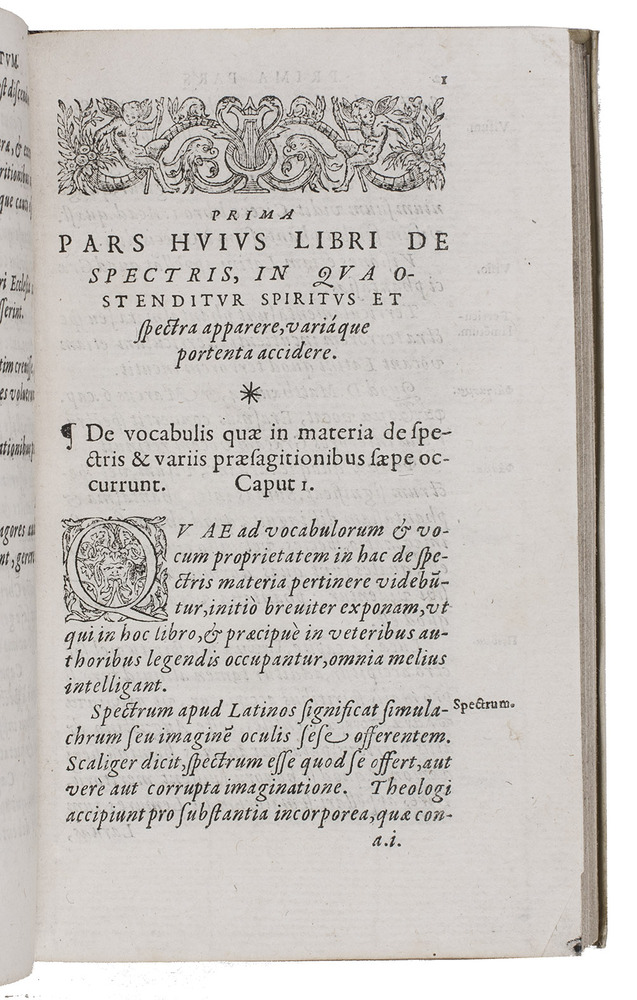 1
PRIMA
PARS HVIVS LIBRI DE
SPECTRIS, IN QVA O-
STENDITVR SPIRITVS ET
ſpectra apparere, variáque
portenta accidere.
*
¶ De vocabulis quæ in materia de ſpe-
ctris & variis præſagitionibus ſæpe oc-
currunt. Caput 1.
QV AE ad vocabulorum & vo-
cum proprietatem in hac de ſpe-
ctris materia pertinere videbũ-
tur, initio breuiter exponam, vt
qui in hoc libro, & præcipuè in veteribus au-
thoribus legendis occupantur, omnia melius
intelligant.
Spectrum apud Latinos ſignificat ſimula- Spectrum.
chrum ſeu imaginẽ oculis ſeſe offerentem.
Scaliger dicit, ſpectrum eſſe quod ſe offert, aut
verè aut corrupta imaginatione. Theologi
accipiunt pro ſubſtantia incorporea, quæ con-
a.i.